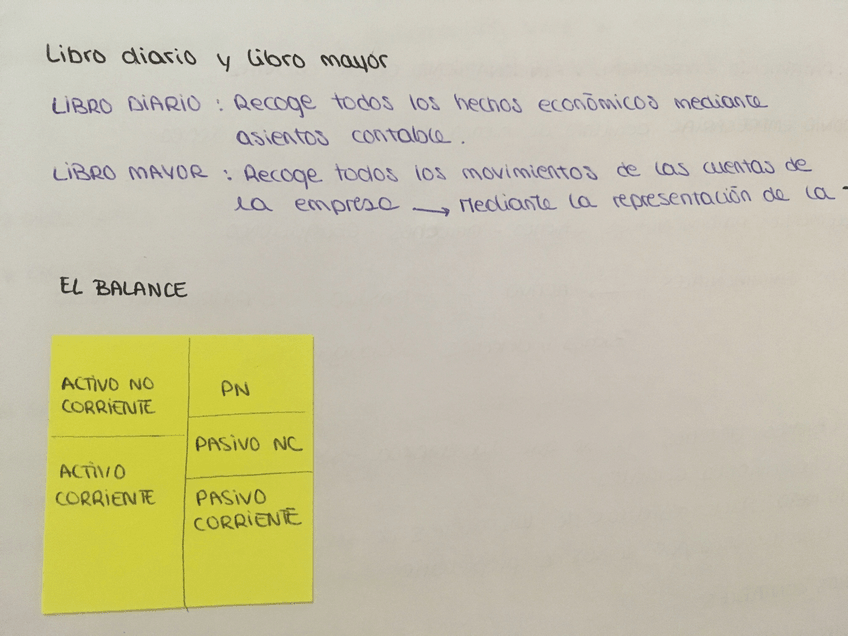 Libro diario y libro mayor
LIBRO DIARIO : Recoge todos los hechos económicos mediante
asientos contable.
LIBRO MAYOR : Recoge todos los movimientos de las cuentas de
la empresa → Mediante la representación de la
EL BALANCE
ACTIVO NO
CORRIENTE
ACTIVO
CORRIENTE
PN
PASIVO NC
PASIVO
CORRIENTE